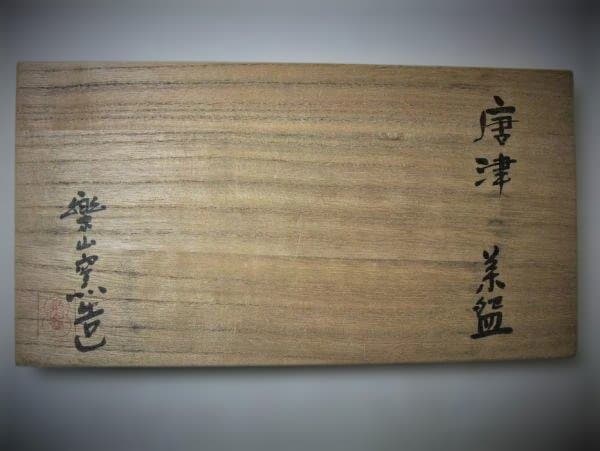 唐津 茶盌
樂山窯造